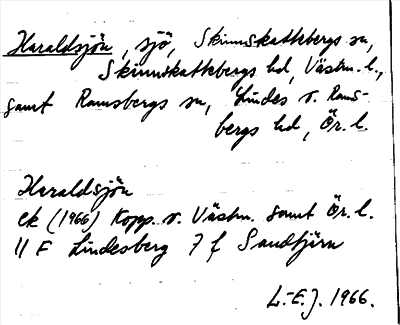 Haraldsjön, sjö, Skinnskattebergs sn,
Skinnskattebergs hd, Västm. l.,
samt Ramsbergs sn, Lindes o. Rams-
bergs hd, Ör. l.
Haraldsjön
ek (1966) Kopp. o. Västm. samt Ör. l.
11 F Lindesberg 7 f Sandtjärn
L.-E. J. 1966.